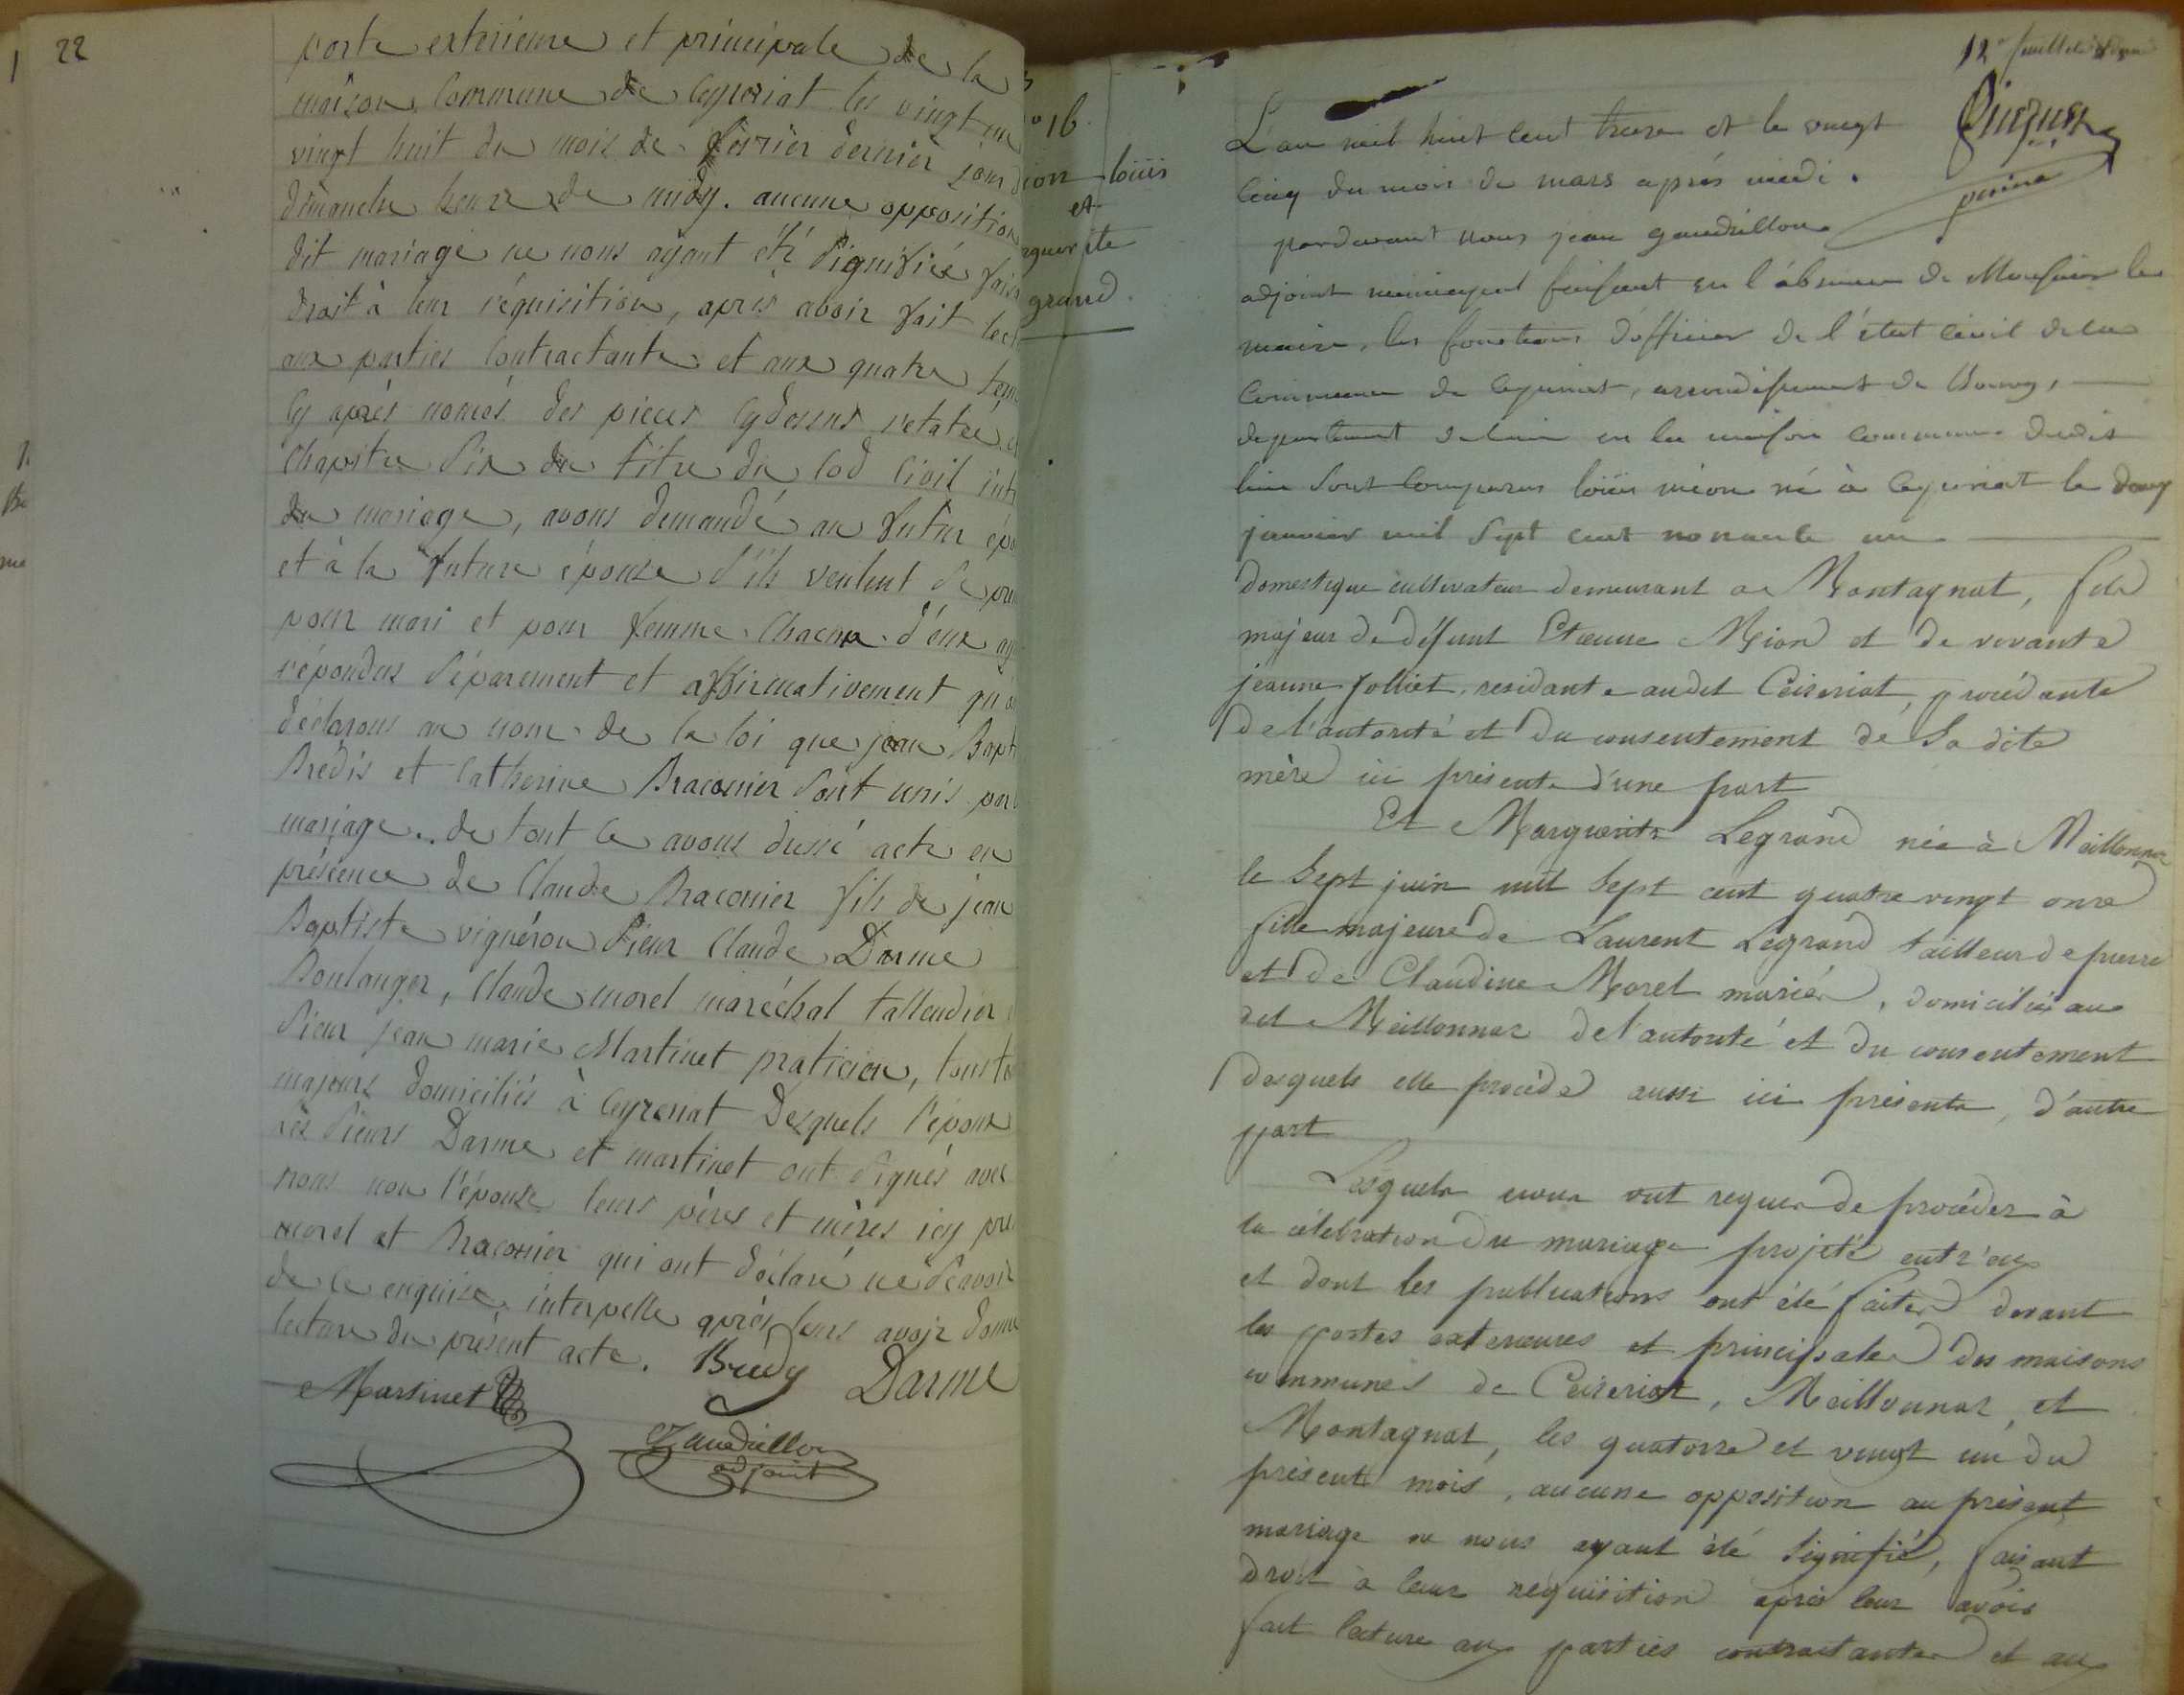 22
porte exterieure et principale de la
maison Commune de Ceyzeriat les vingt un
vingt huit du mois de février dernier jour
dimanche heure de midy. aucune opposition
dit mariage ne nous ayant été signifiée fais
droit à leur réquisition, apres avoir fait lect
aux parties Contractante et aux quatre tem
cy aprés només des pieces cydessus relatée
Chapitre Six du titre du Cod Civil inti
du mariage, avons demandé au futur épo
et à la future épouse s'ils veulent se pre
pour mari et pour femme. Chacun d'eux ay
répondus séparement et affirmativement qu'
déclarons au nom de la loi que jean Bapt
Brédis et Catherine Braconnier sont unis par
mariage. de tout ce avons dressé acte en
présence de Claude Braconier fils de jean
Baptiste vignéron Sieur Claude Darme
Boulanger, Claude morel maréchal tallendier
Sieur jean marie Martinet praticien, tous
majeurs domiciliés à Ceyzeriat Desquels l'époux
les Sieurs Darme et martinet ont signés avec
nous non l'épouse leurs pères et mères icy pre
morel et Braconier qui ont déclaré ne sçavoir
de ce enquise interpellé après leurs avoir donné
lecture du présent acte. Bredy Darme
Martinet
Gaudrillon
adjoint
16
dion louis
et
rguerite
grand
12e feuillet
L'an mil huit cent treize et le vingt
cinq du mois de mars après midi.
pardevant nous jean gaudrillon
adjoint municipal faisant en l'absence de Monsieur le
maire, les fonctions d'officier de l'état civil de la
commune de Ceyzeriat, arrondissement de Bourg,
departement de l'ain en la maison commune dudit
lieu Sont comparus loüis mion né à Ceyzeriat le douz
janvier mil sept cent nonante un
domestique cultivateur demeurant a Montagnat, fils
majeur de défunt Etienne Mion et de vivante
jeanne Jolliet, residante audit Ceizeriat, procédante
de l'autorité et du consentement de Sa dite
mère ici présente d'une part
Et Marguerite Legrand née à Meillonnaz
le Sept juin mil Sept cent quatre vingt onze
fille majeure de Laurent Legrand tailleur de pierre
et de Claudine Morel mariés, domiciliés au
dit Meillonnaz de l'autorité et du consentement
desquels elle procède aussi ici présente, d'autre
part
Lesquels nous ont requis de procéder à
la célébration du mariage projeté entr'eux
et dont les publications ont été faites devant
les portes exterieures et principales des maisons
communes de Ceizeriat, Meillonnaz, et
Montagnat, les quatorze et vingt un du
présent mois, aucune opposition au présent
mariage ne nous ayant été signifié, faisant
droit à leur requisition après leur avoir
fait lecture aux parties contractantes et aux